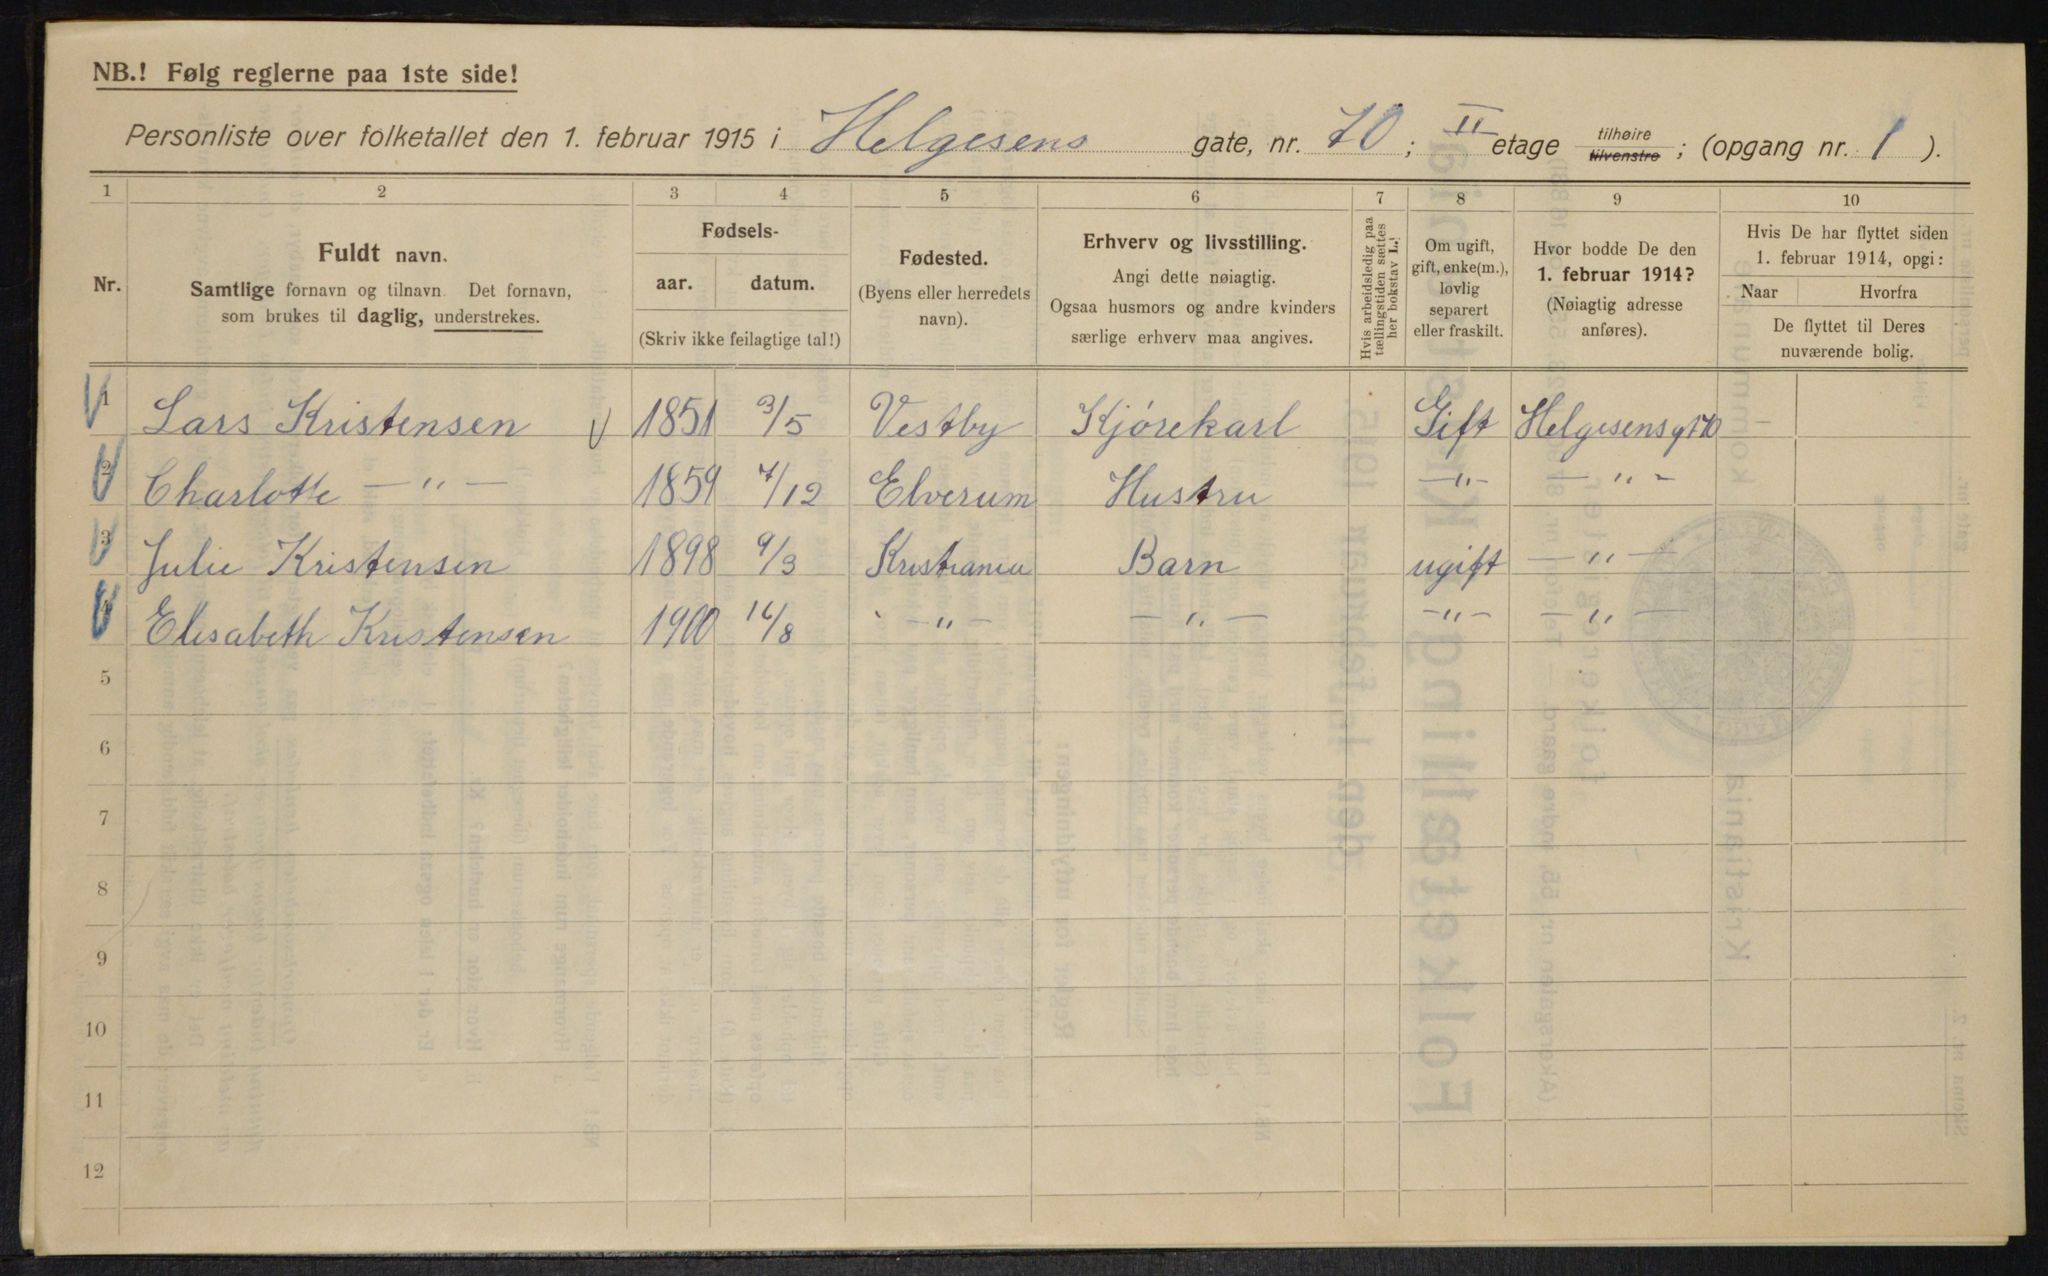 NB.! Følg reglerne paa 1ste side!
Personliste over folketallet den 1. februar 1915 i Helgesens gate, nr. 70 ; II etage tilhøire tilvenstre ; (opgang nr. 1 ).
1 2 3 4 5 6 7 8 9 10
Nr.
Fuldt navn.
Samtlige fornavn og tilnavn. Det fornavn,
som brukes til daglig, understrekes.
Fødsels-
aar. datum.
(Skriv ikke feilagtige tal!)
Fødested.
(Byens eller herredets
navn).
Erhverv og livsstilling.
Angi dette nøiagtig.
Ogsaa husmors og andre kvinders
særlige erhverv maa angives.
Hvis arbeidsledig paa
tællingstiden sættes
her bokstav L.
Om ugift,
gift, enke(m.),
lovlig
separert
eller fraskilt.
Hvor bodde De den
1. februar 1914?
(Nøiagtig adresse
anføres).
Hvis De har flyttet siden
1. februar 1914, opgi:
Naar Hvorfra
De flyttet til Deres
nuværende bolig.
1 Lars Kristensen 1851 3/5 Vestby Kjørekarl Gift Helgesensgt 70
2 Charlotte — " — 1859 7/12 Elverum Hustru — " — — " —
3 Julie Kristensen 1898 9/3 Kristiania Barn ugift — " —
4 Elisabeth Kristensen 1900 16/8 — " — — " — — " — — " —
5
6
7
8
9
10
11
12